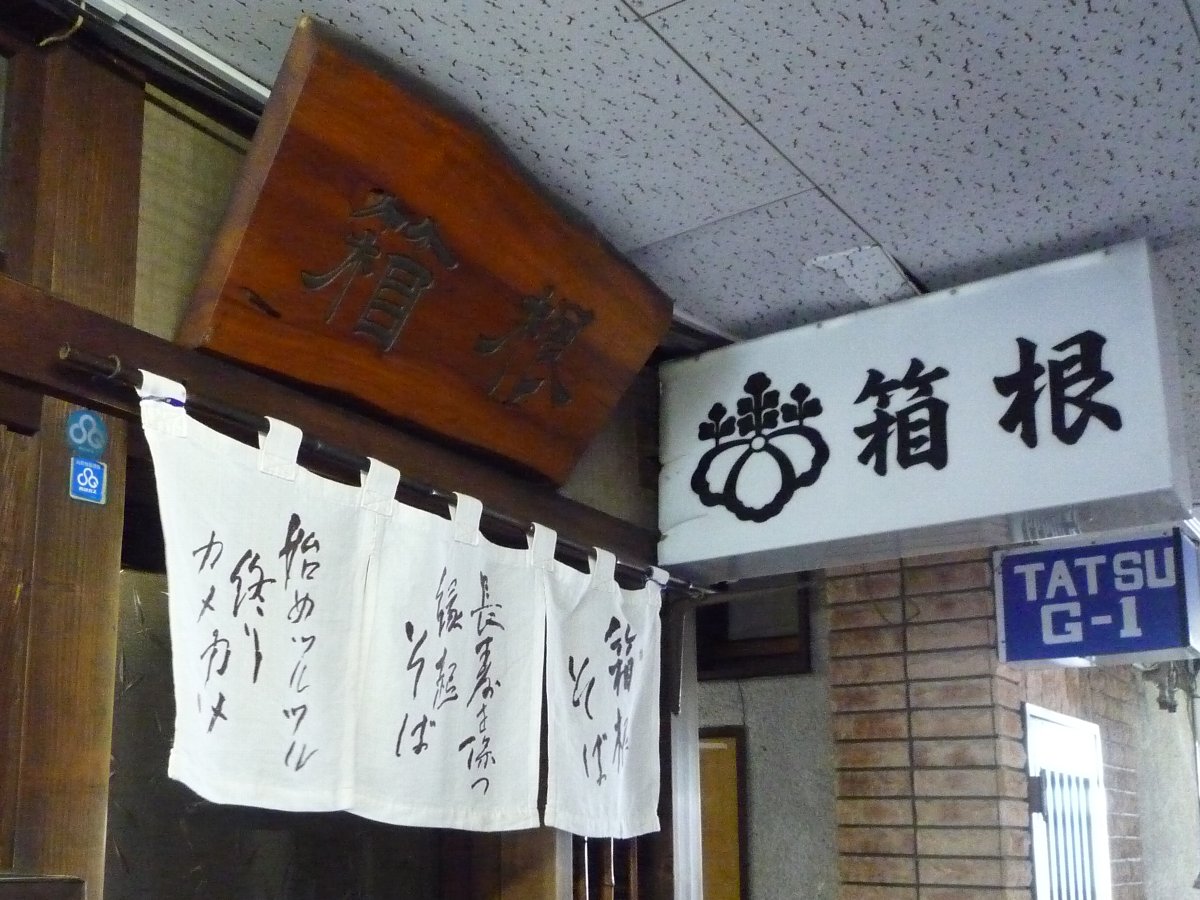 箱根
箱根
TATSU
G-1
箱根
そば
長寿を保つ
縁起
そば
始めツルツル
終り
カメカメ